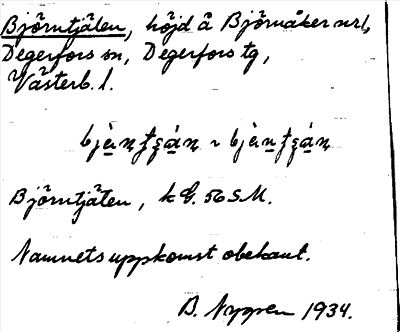 Björntjälen, höjd å Björnåker nrl,
Degerfors sn, Degerfors tg,
Västerb. l.
Björntjäten, k G. 56 S.M.
Namnets uppkomst obekant.
B. Nygren 1934.